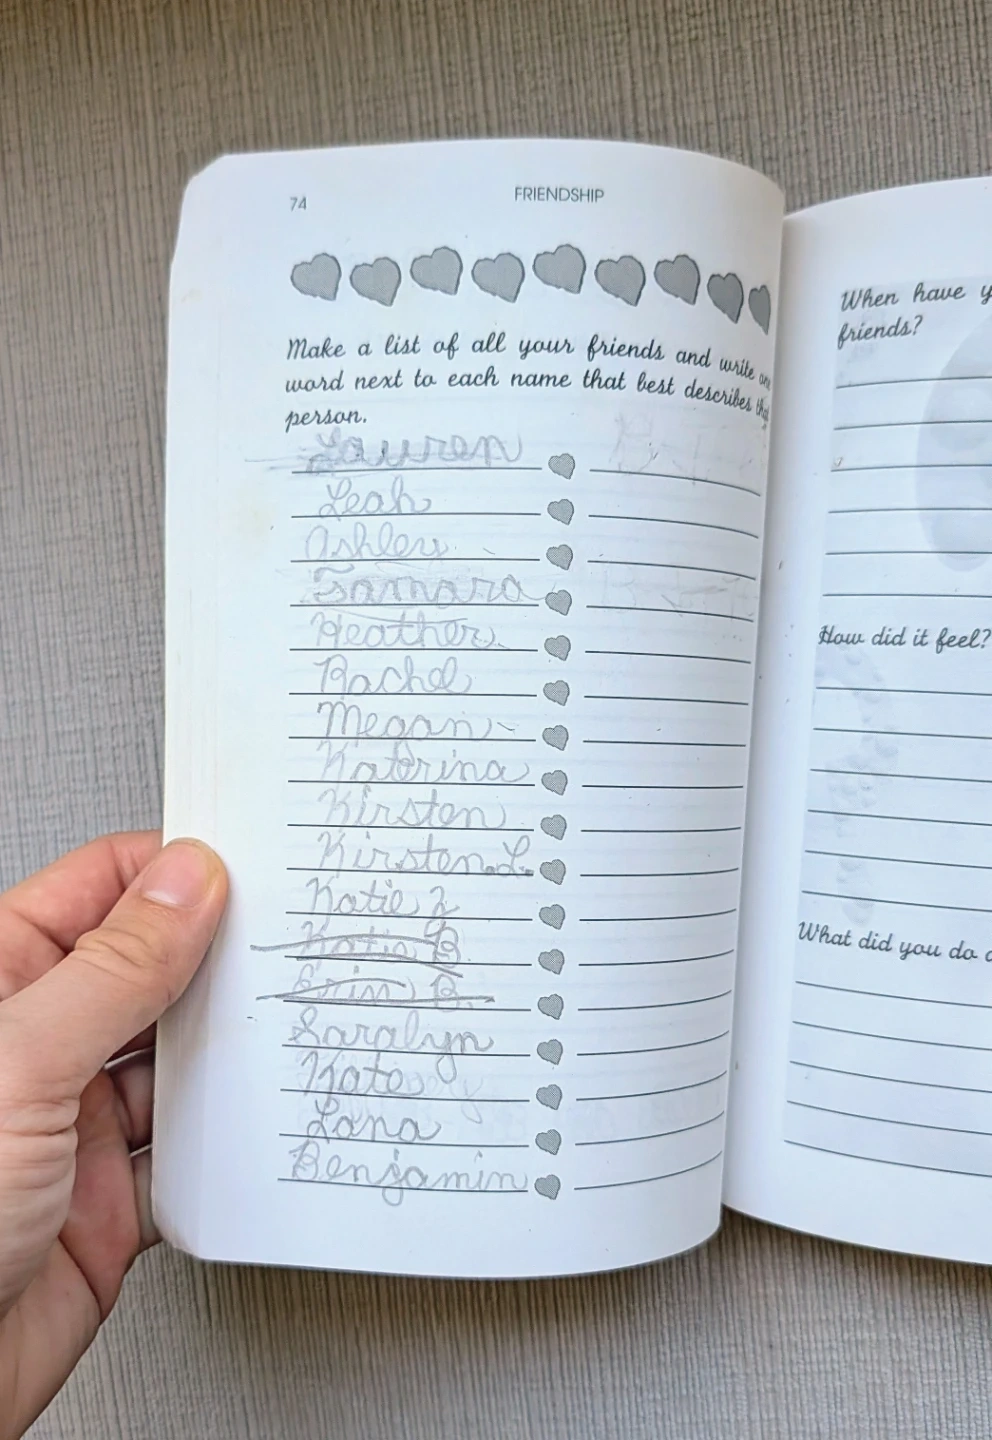 74 FRIENDSHIP
Make a list of all your friends and write one
word next to each name that best describes that
person.
Lauren
Leah
Ashley
Tamara
Heather
Rachel
Megan
Katerina
Kirsten
Kirsten L.
Katie Z
Katie B
Erin B.
Saralyn
Kate
Lana
Benjamin
When have y
friends?
How did it feel?
What did you do